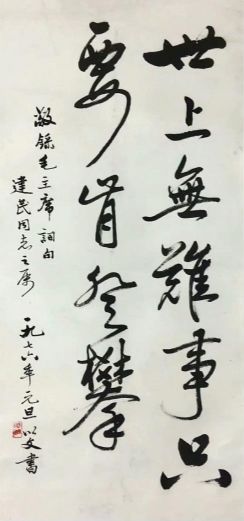 世上無難事只
要肯登攀
敬錄毛主席詞句
建民同志之屬
一九七六年元旦以文書